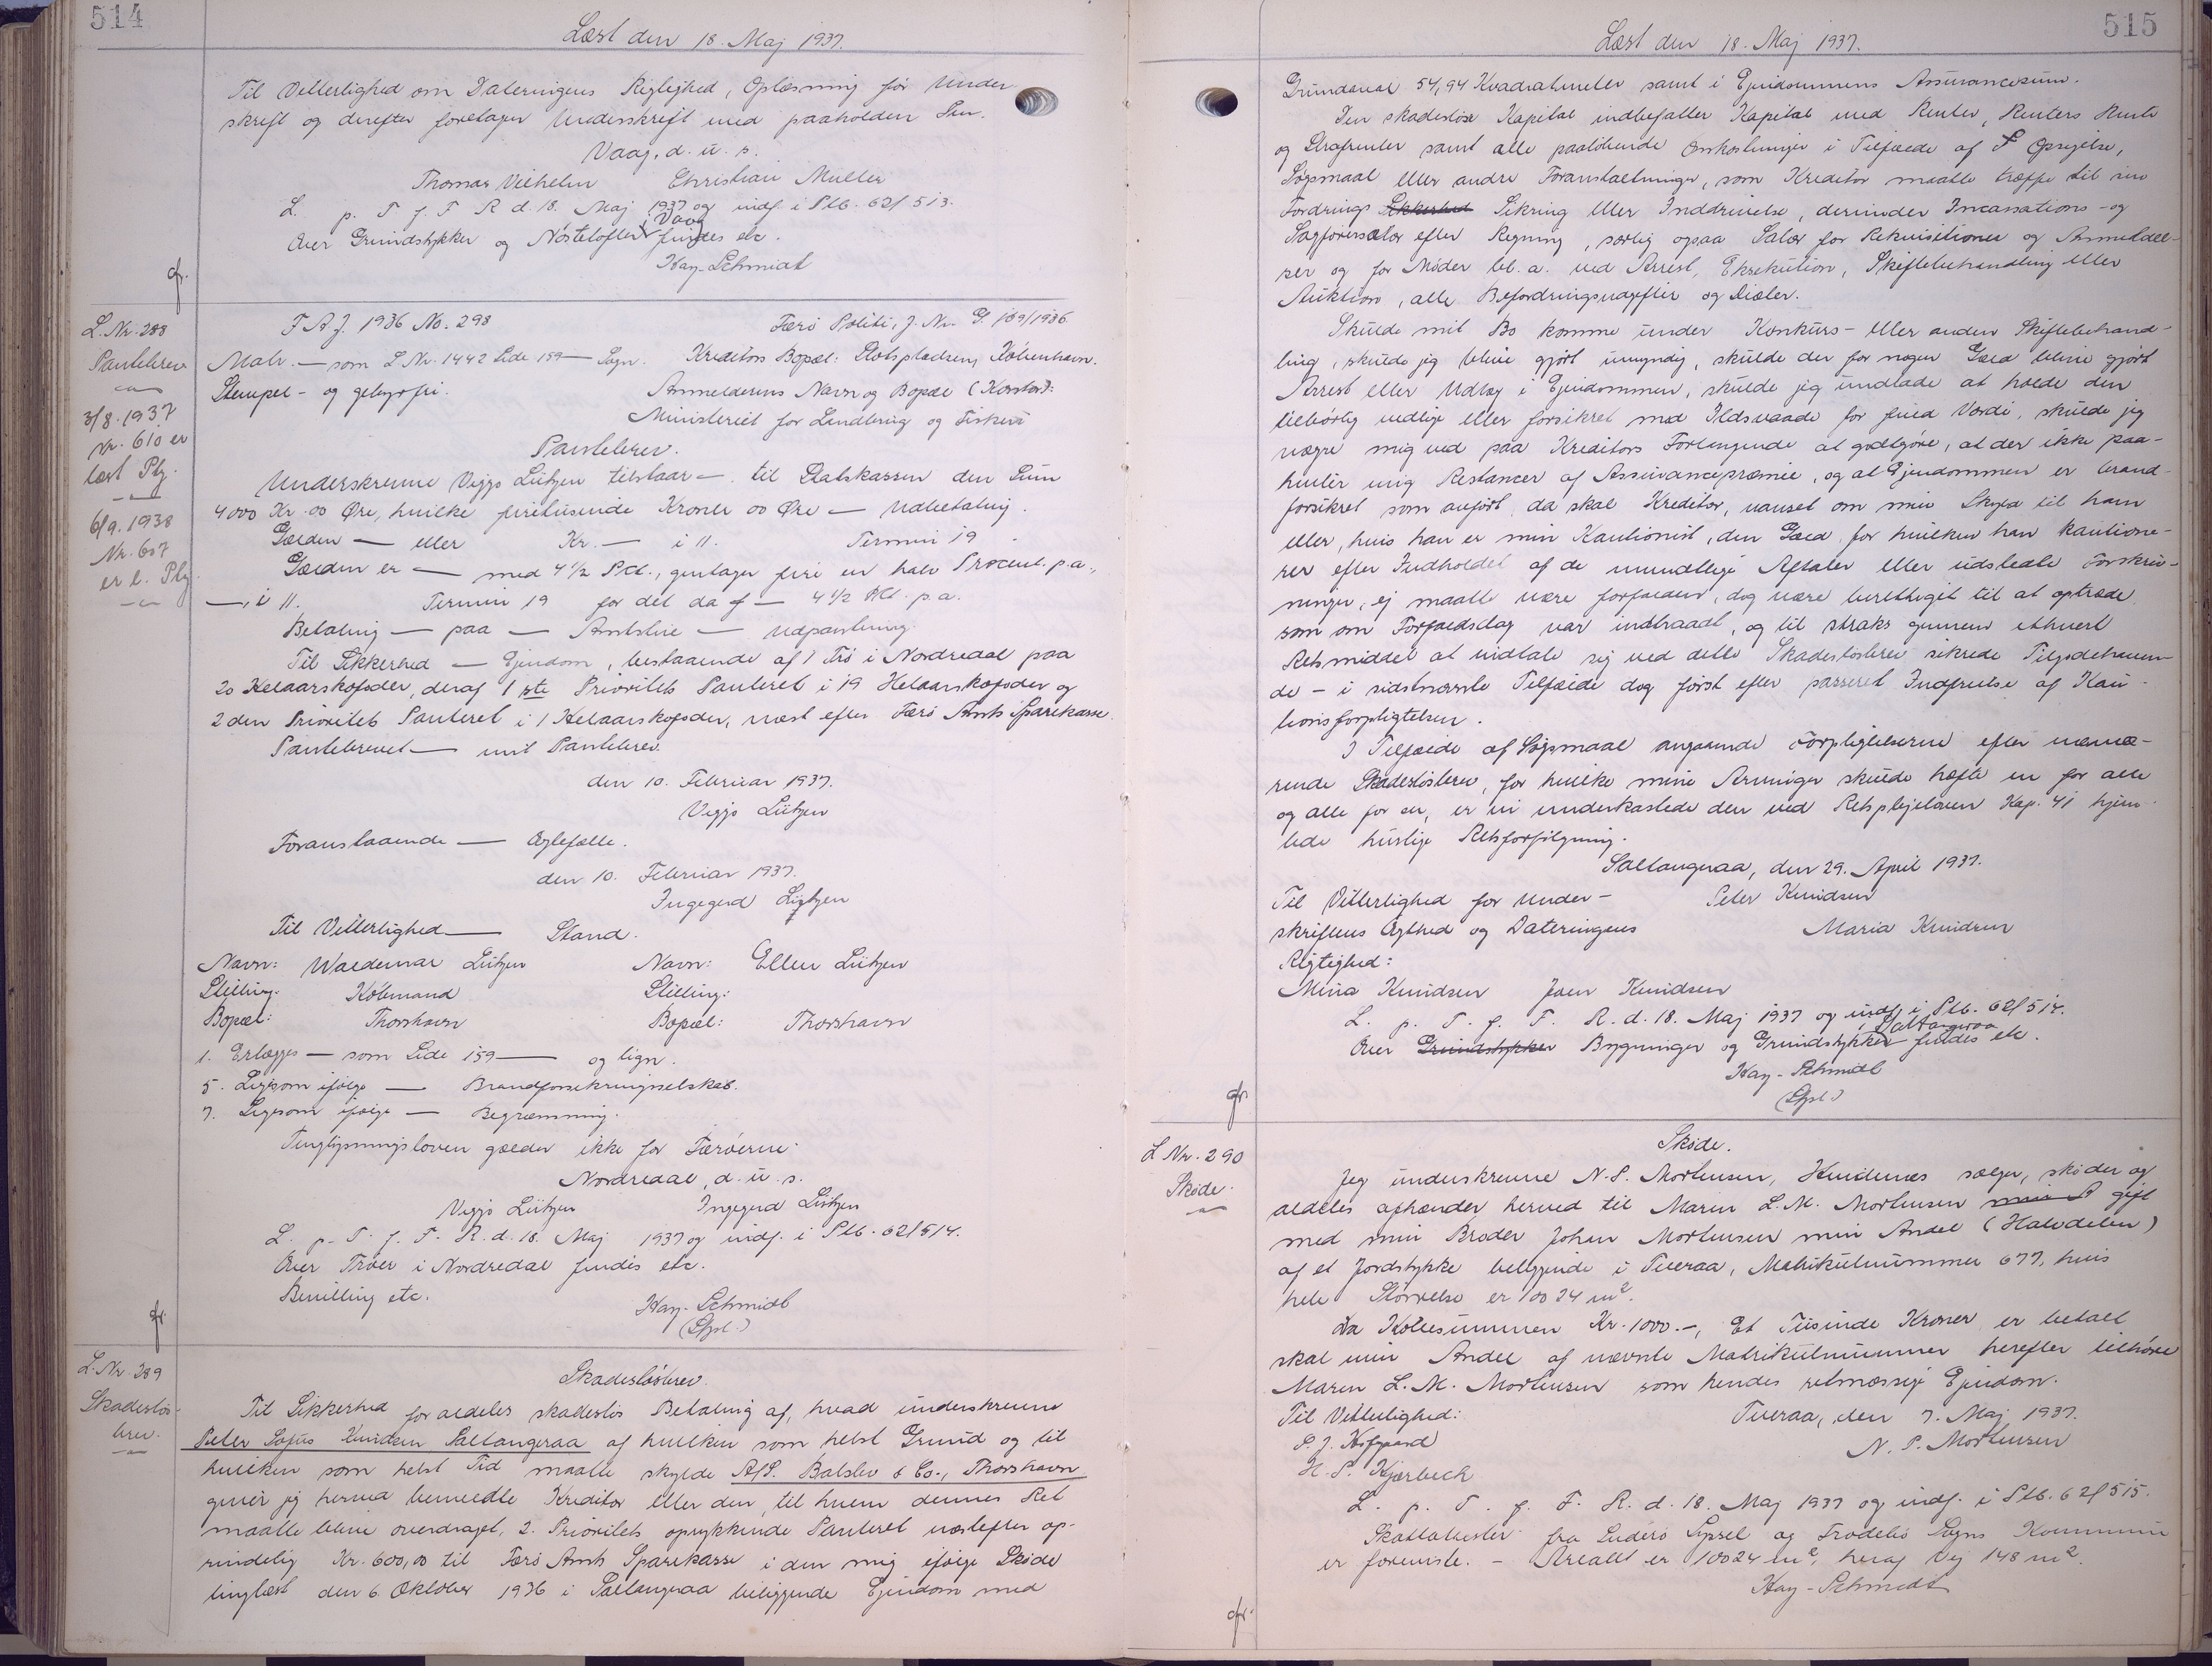 514
Læst den 18. Maj 1937.
Til Vitterlighed om Dateringens Rigtighed, Oplæsning før Under
skrift og derefter foretagen Underskrift med paaholden Pen.
Vaag, d. u. s.
Thomas Vilhelm Christian Müller
L. p. T. f. F. R. d. 18. Maj 1937 og indf. i Ptb. 62/513.
i Vaag
Over Grundstykker og Nøstetofter findes etc.
Kay-Schmidt
gr.
L. Nr. 288
Pantebrev
3/8. 1937
Nr. 610 er
læst Ptg.
6/9. 1938
Nr. 607
er l. Ptg.
F A J. 1936 No. 298 Færø Politi, J. Nr. G. 169/1936.
Matr. — som L Nr. 1442 Side 159 — Sogn. Kreditors Bopæl: Slotspladsen, København.
Stempel- og gebyrfri. Anmelderens Navn og Bopæl (Kontor):
Ministeriet for Landbrug og Fiskeri
Pantebrev.
Underskrevne Viggo Lützen tilstaar — til Statskassen den Sum
4000 Kr. 00 Øre, hvilke firetusinde Kroner 00 Øre — Udbetaling.
Gælden — eller Kr. — i 11. Termin 19 .
Gælden er — med 4½ Pct., gentager fire en halv Procent. p.a.,
—, i 11. Termin 19 for det da f — 4½ Pct. p.a.
Betaling — paa — Amtstue — Udpantning.
Til Sikkerhed — Ejendom, bestaaende af 1 Trø i Nordredal paa
20 Helaarskofoder, deraf 1ste Prioritets Panteret i 19 Helaarskofoder og
2den Prioritets Panteret i 1 Helaarskofoder, næst efter Færø Amts Sparekasse.
Pantebrevet — mit Pantebrev.
den 10. Februar 1937.
Viggo Lützen
Foranstaaende — Ægtefælle.
den 10. Februar 1937.
Ingegerd Lützen
Til Vitterlighed — Stand.
Navn: Waldemar Lützen Navn: Ellen Lützen
Stilling: Købmand Stilling:
Bopæl: Thorshavn Bopæl: Thorshavn
1. Erlægges — som Side 159 — og lign.
5. Ligesom ifølge — Brandforsikringsselskab.
7. Ligesom ifølge — Begrænsning.
Tinglysningsloven gælder ikke for Færøerne.
Nordredal, d. u. s.
Viggo Lützen Ingegerd Lützen
L. p. T. f. F. R. d. 18. Maj 1937 og indf. i Ptb. 62/514.
Over Trøer i Nordredal findes etc.
Bevilling etc.
Kay-Schmidt
(Spl.)
gr.
L. Nr. 289
Skadesløs-
brev.
Skadesløsbrev.
Til Sikkerhed for aldeles skadesløs Betaling af, hvad underskrevne
Peter Sofus Knudsen Saltangeraa af hvilken som helst Grund og til
hvilken som helst Tid maatte skylde A/S. Balslev & Co., Thorshavn
giver jeg herved bemeldte Kreditor eller den, til hvem dennes Ret
maatte blive overdraget, 2. Prioritets oprykkende Panteret næstefter op-
rindelig Kr. 600,00 til Færø Amts Sparekasse i den mig ifølge Skøde
tinglæst den 6. Oktober 1936 i Saltangeraa beliggende Ejendom med
515
Læst den 18. Maj 1937.
Grundareal 54,94 Kvadratmeter samt i Ejendommens Assurancesum.
Den skadesløse Kapital indbefatter Kapital med Renter, Renters Rente
og Strafrenter samt alle paaløbende Omkostninger i Tilfælde af Opsigelse,
Søgsmaal eller andre Foranstaltninger, som Kreditor maatte træffe til sin
Fordrings Sikkerhed Sikring eller Inddrivelse, derunder Incassations- og
Sagførersalær efter Regning, særlig ogsaa Salær for Rekvisitioner og Anmeldel-
ser og for Møder bl. a. ved Arrest, Eksekution, Skiftebehandling eller
Auktion, alle Befordringsudgifter og Diæter.
Skulde mit Bo komme under Konkurs- eller anden Skiftebehand-
ling, skulde jeg blive gjort umyndig, skulde der for nogen Gæld blive gjort
Arrest eller Udlæg i Ejendommen, skulde jeg undlade at holde den
tilbørlig vedlige eller forsikret mod Ildsvaade for fuld Værdi, skulde jeg
vægre mig ved paa Kreditors Forlangende at godtgøre, at der ikke paa-
hviler mig Restancer af Assurancepræmie, og at Ejendommen er brand-
forsikret som anført, da skal Kreditor, uanset om min Skyld til ham
eller, hvis han er min Kautionist, den Gæld, for hvilken han kautione-
rer efter Indholdet af de mundtlige Aftaler eller udstedte Forskriv-
ninger, ej maatte være forfalden, dog være berettiget til at optræde
som om Forfaldsdag var indtraadt, og til straks gennem ethvert
Retsmiddel at indtale sig ved dette Skadesløsbrev sikrede Tilgodehaven-
de - i sidstnævnte Tilfælde dog først efter passeret Indfrielse af Kau-
tionsforpligtelsen.
I Tilfælde af Søgsmaal angaaende Forpligtelserne efter nærvæ-
rende Skadesløsbrev, for hvilke mine Arvinger skulde hæfte en for alle
og alle for en, er vi underkastede den ved Retsplejeloven Kap. 41 hjem-
lede hurtige Retsforfølgning.
Saltangeraa, den 29. April 1937.
Til Vitterlighed for Under- Peter Knudsen
skriftens Ægthed og Dateringens Maria Knudsen
Rigtighed:
Mina Knudsen Joen Knudsen
L. p. T. f. F. R. d. 18. Maj 1937 og indf. i Ptb. 62/514.
i Saltangeraa
Over Grundstykker Bygninger og Grundstykker findes etc.
Kay-Schmidt
(Spl.)
gr.
L Nr. 290
Skøde.
Skøde.
Jeg underskrevne N. P. Mortensen, Hvidenæs sælger, skøder og
aldeles afhænder herved til Maren L. M. Mortensen gift
med min Broder Johan Mortensen min Andel (Halvdelen)
af et Jordstykke beliggende i Tveraa, Matrikulnummer 677, hvis
hele Størrelse er 10024 m².
Da Købesummen Kr. 1000.-, Et Tusinde Kroner er betalt
skal min Andel af nævnte Matrikulnummer herefter tilhøre
Maren L. M. Mortensen som hendes retmæssige Ejendom.
Til Vitterlighed: Tveraa, den 7. Maj 1937.
P. J. Hofgaard N. P. Mortensen
H. P. Kjærbech
L. p. T. f. F. R. d. 18. Maj 1937 og indf. i Ptb. 62/515.
Skatteattester fra Suderø Syssel og Frodebø Sogns Kommune
er foreviste. - Arealet er 10024 m², heraf Vej 148 m².
Kay-Schmidt
gr.